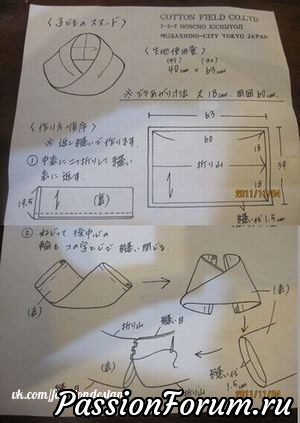 <子どものスヌード>
COTTON FIELD CO.LTD
2-2-7 HONCHO KICHIJYOJI
MUSASHINO-CITY TOKYO JAPAN
<生地使用量>
40cm × 63cm
※できあがり寸法 丈18cm、周囲60cm
<作り方順序>
※返し縫いで作ります。
① 中表に二つ折りして縫い
表に返す。
19.5
(裏)
63
60
18
折り山
18
39
縫い代1.5cm
2011/11/04
② ねじって後中心の
輪をコの字とじで縫い閉じる。
(表)
(表)
折り山
縫い目
(表)
縫い代
1.5cm
縫い目
折り山
2011/11/04
vk.com/fashiondesign
PassionForum.ru